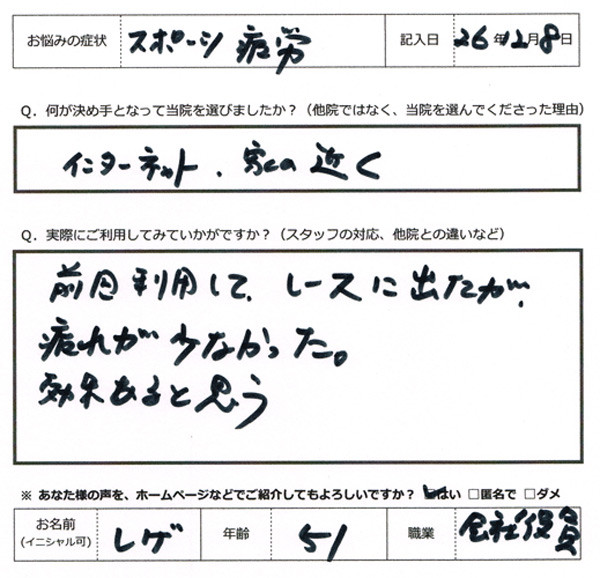 お悩みの症状 スポーツ疲労 記入日 26年12月8日
Q．何が決め手となって当院を選びましたか？（他院ではなく、当院を選んでくださった理由）
インターネット、家の近く
Q．実際にご利用してみていかがですか？（スタッフの対応、他院との違いなど）
前回利用して、レースに出たが、
疲れが少なかった。
効果あると思う
※ あなた様の声を、ホームページなどでご紹介してもよろしいですか？ ☑はい □匿名で □ダメ
お名前 レゲ 年齢 51 職業 会社役員
(イニシャル可)